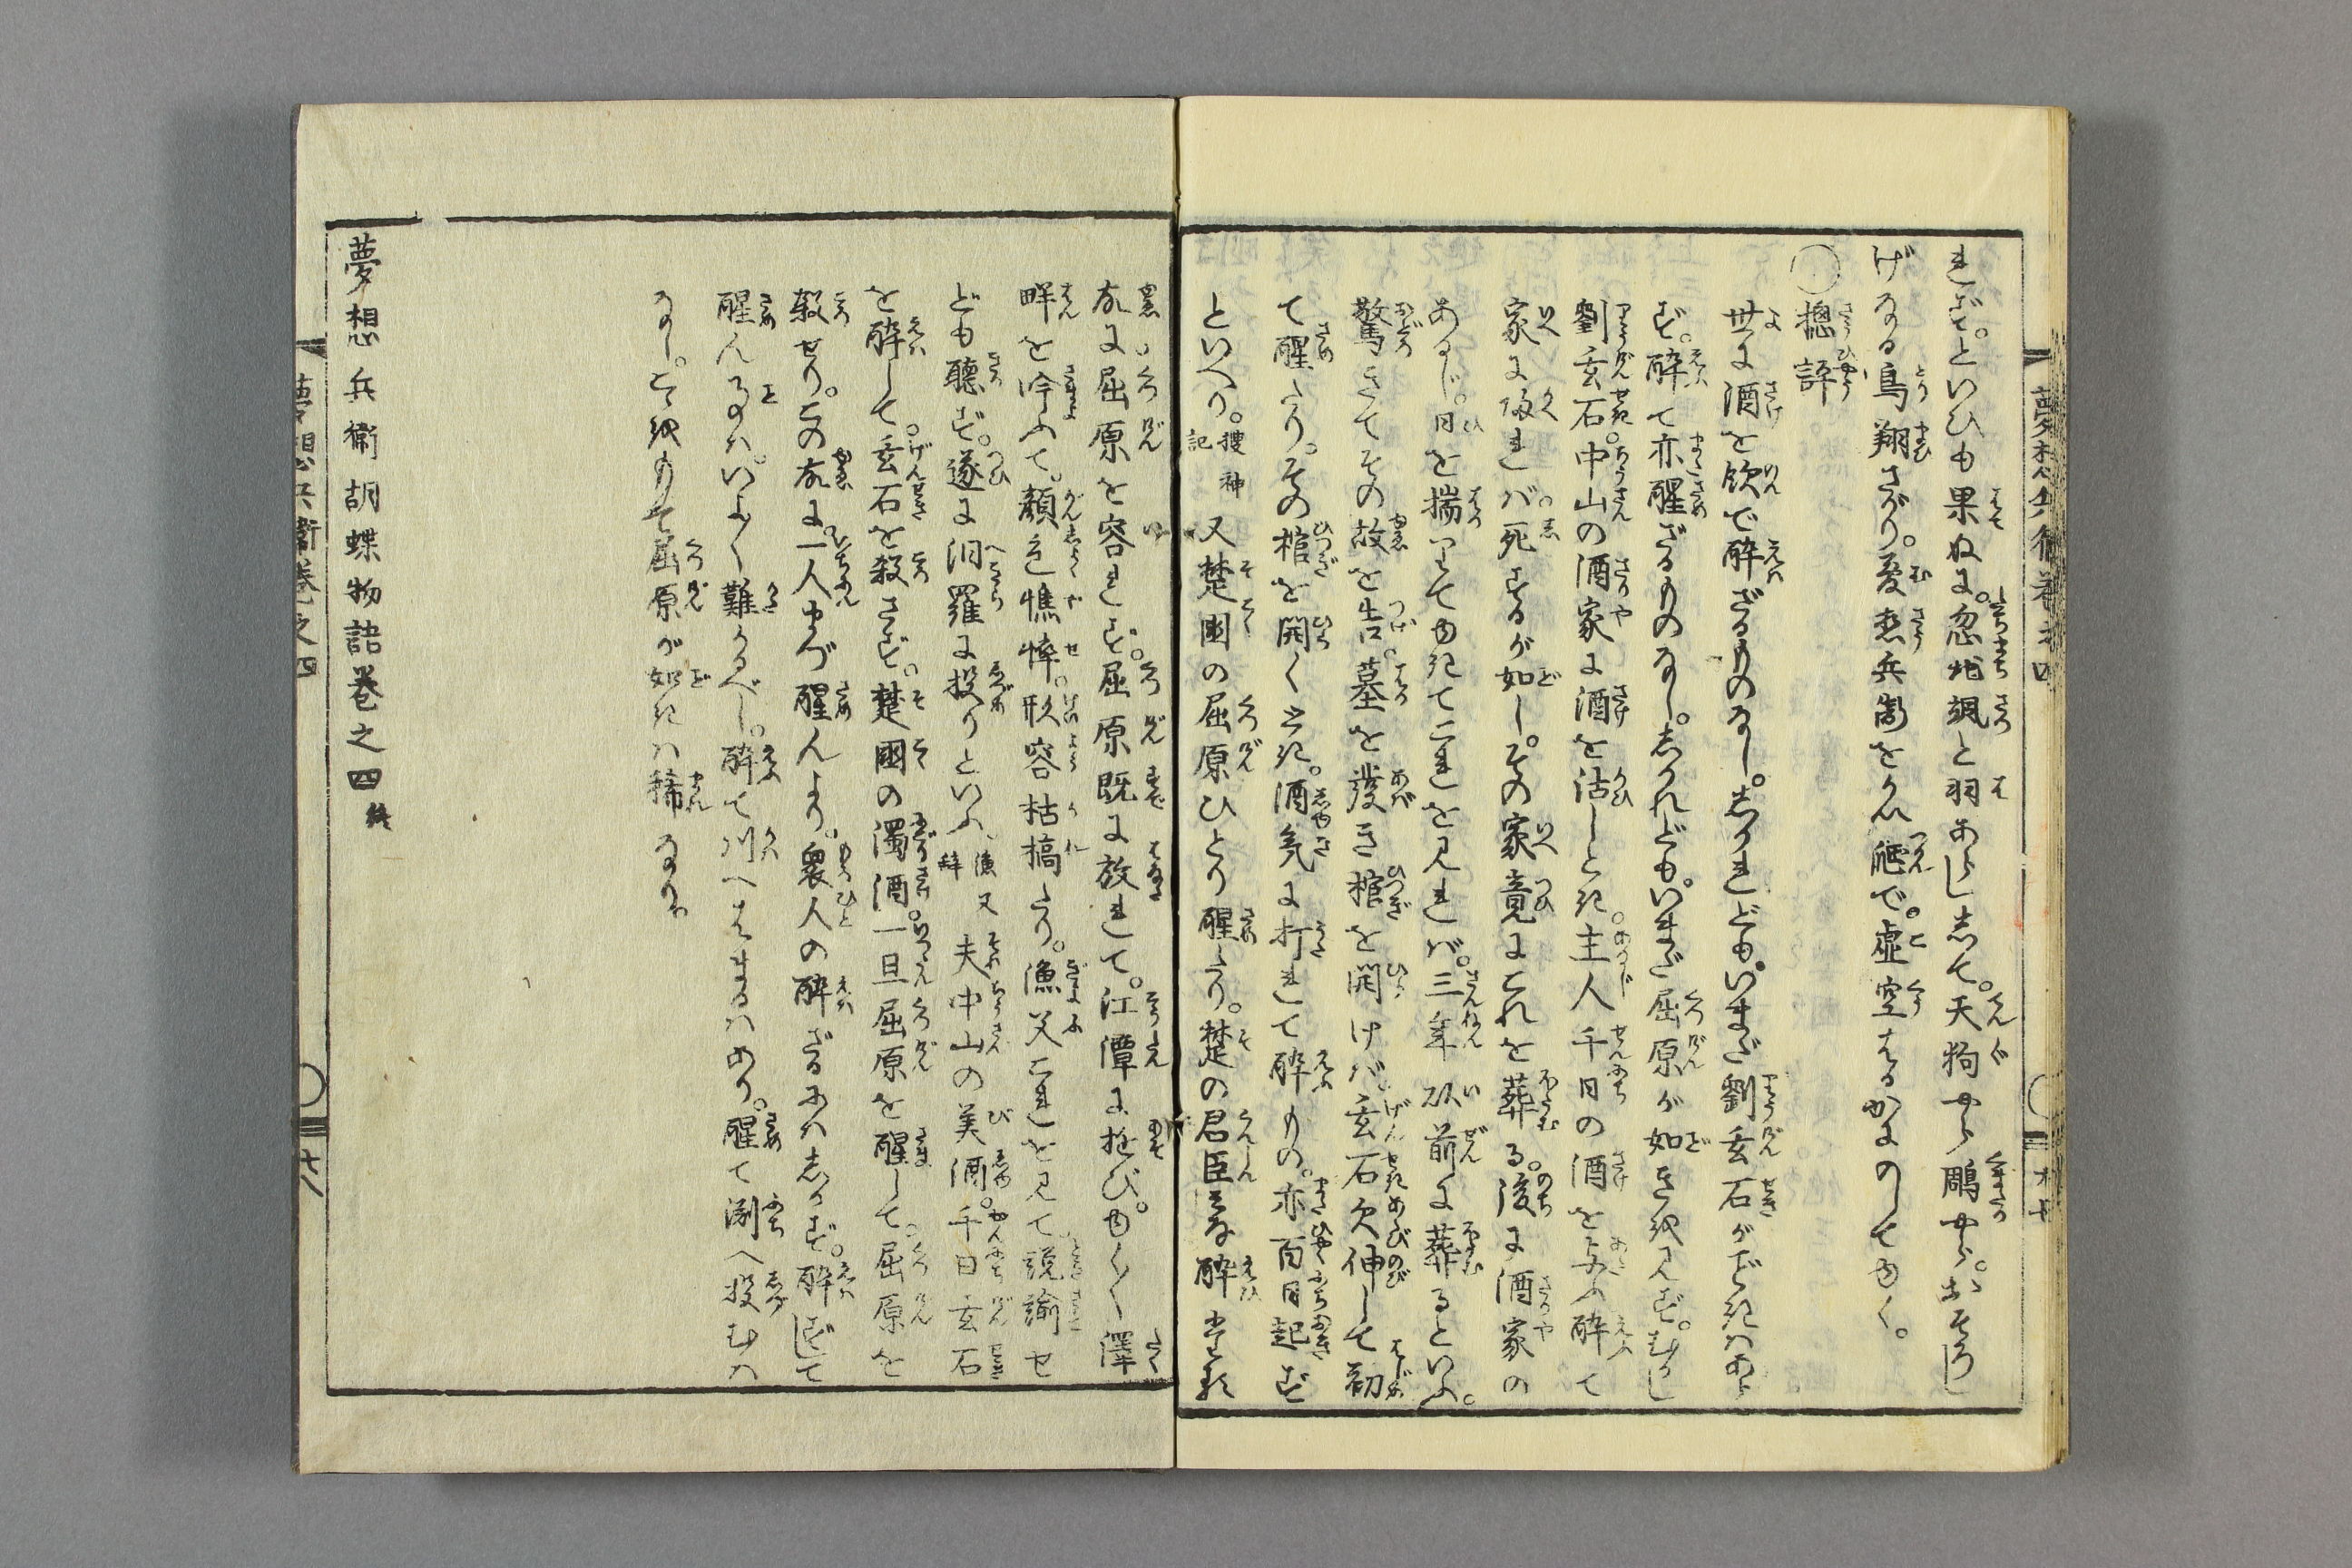 れぞ。といひも果ぬに。忽地颯と羽おとして。天狗やら鵰やら。おそろし
げなる鳥翔さがり。夢想兵衛をかい爴で。虚空はるかにのしてゆく。
総評
世に酒を飲で酔ざるものなし。しかれども。いまだ劉玄石がごときはあら
ず。酔て亦醒ざるものなし。しかれども。いまだ屈原が如きを見ず。むかし
劉玄石。中山の酒家に酒を沽しとき。主人千日の酒をあたふ酔て
家に皈れば。死するが如し。その家竟にこれを葬る。後に酒家の
あるじ。日を揣りてゆきてこれを見れば。三年以前に葬るといふ。
驚きてその故を告。墓を発き棺を開けば。玄石欠伸して初
て醒たり。その棺を開くとき。酒気に打れて酔もの。亦百日起ず
といへり。捜神記 又楚国の屈原ひとり醒たり。楚の君臣みな酔たり
故に屈原を容れず。屈原既に放れて。江潭に遊び。ゆくゆく澤
畔を吟ふて。顔色憔悴。形容枯槁たり。漁父これを見て説諭せ
ども聴ず。遂に汨羅に投りといふ。漁父辞 夫中山の美酒。千日玄石
を酔して。玄石を殺さず。楚國の濁酒。一旦屈原を醒して。屈原を
殺せり。この故に。一人まづ醒んより。衆人の酔ざるにはしかず。酔ずして
醒んるのは。いよいよ難かるべし。酔て川へはまるはあり。醒て淵へ投むは
なし。こを以もて屈原が如きは稀なり。
夢想兵衛胡蝶物語巻之四 終
夢想兵衛巻之四